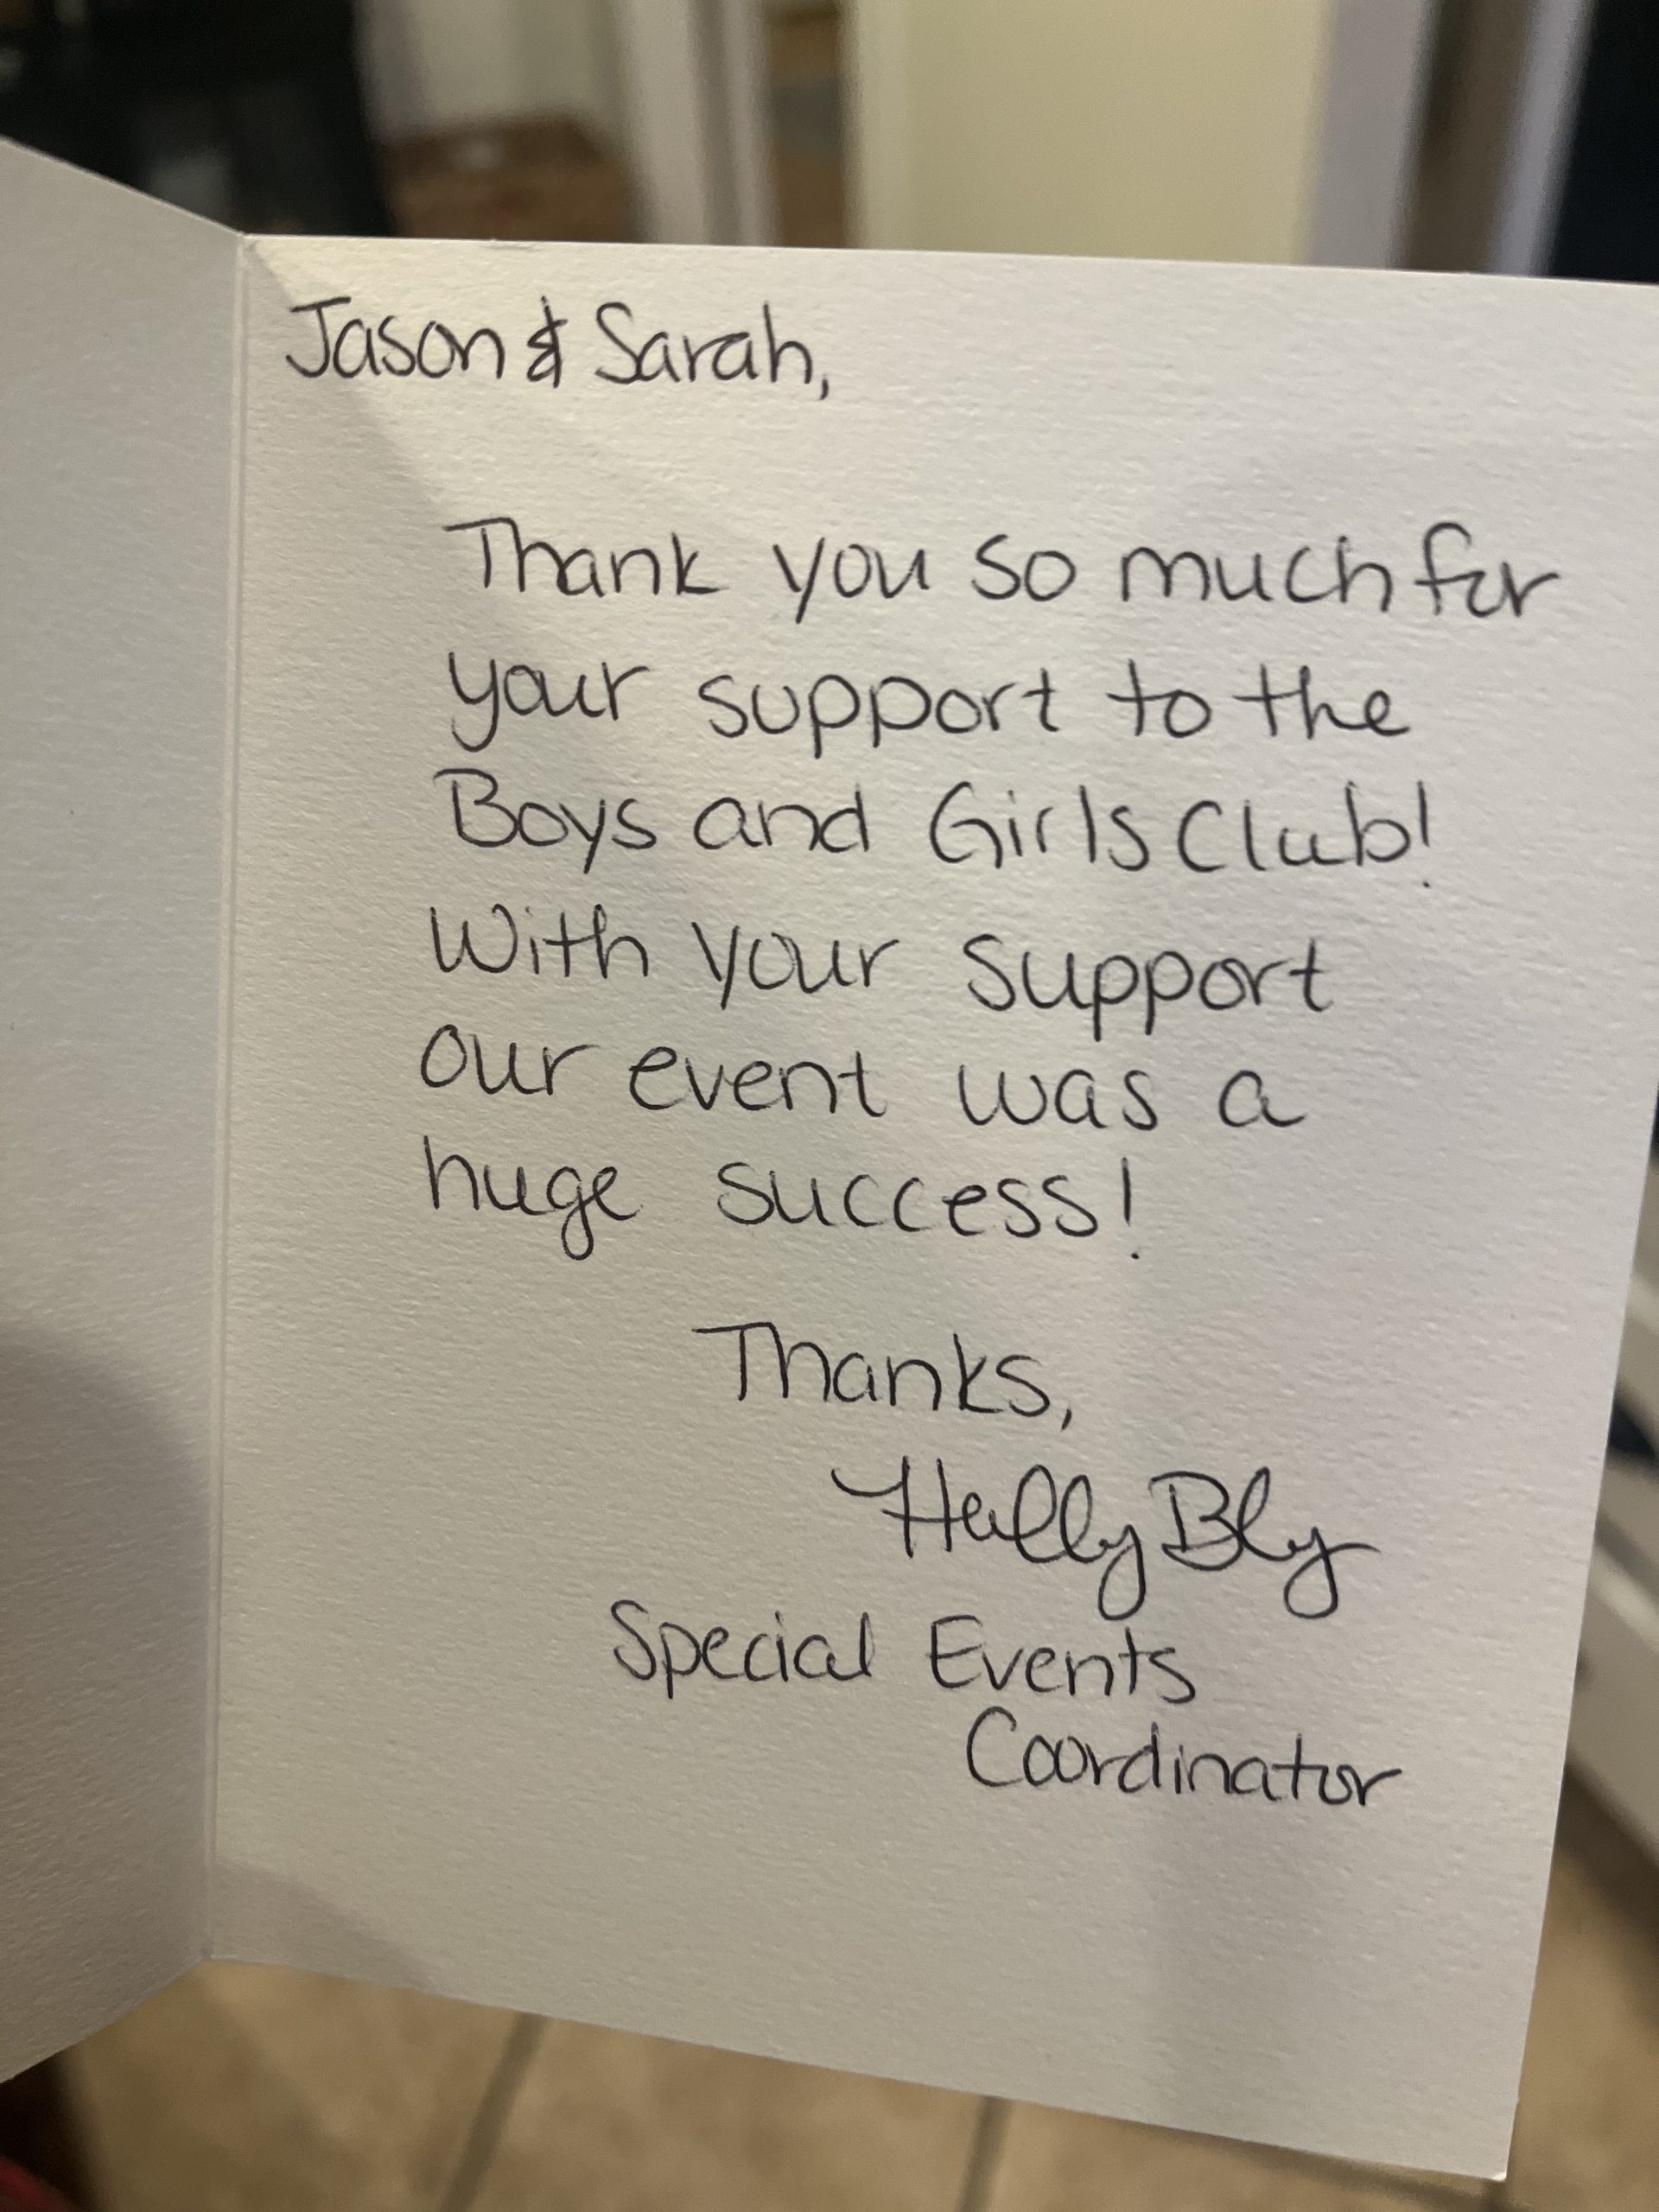 Jason & Sarah,
Thank you so much for
your support to the
Boys and Girls Club!
With your support
our event was a
huge success!
Thanks,
Hally Bly
Special Events
Coordinator